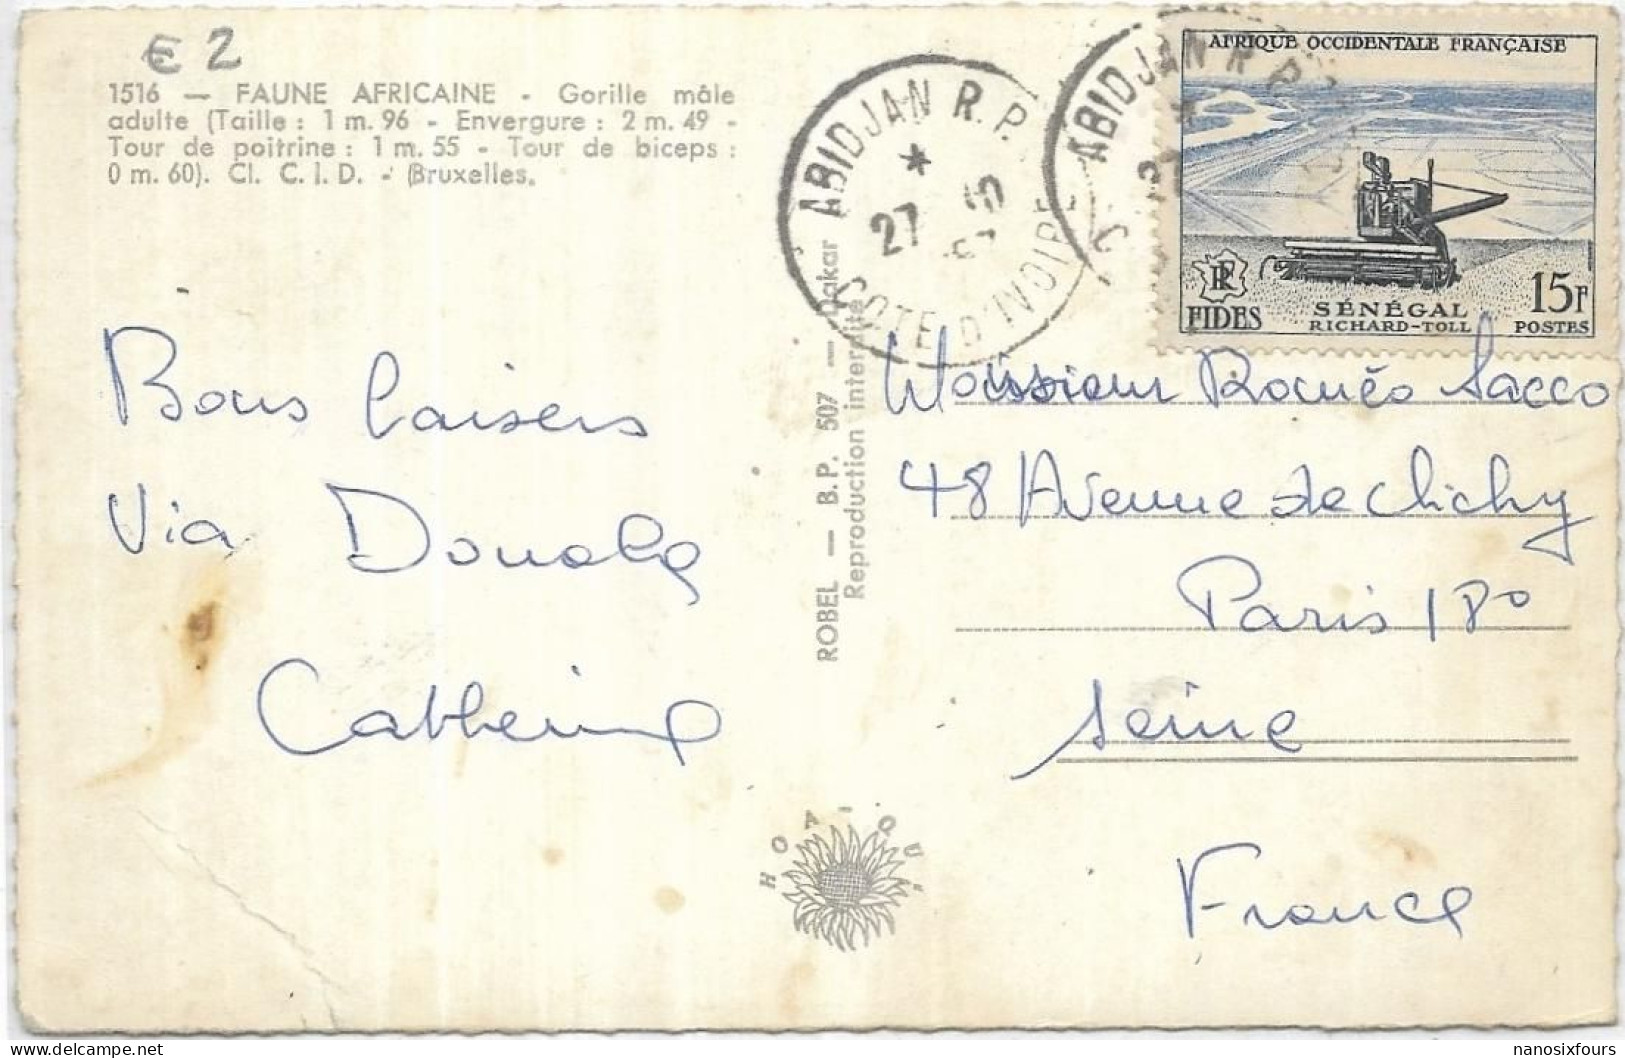 € 2
1516 — FAUNE AFRICAINE - Gorille mâle
adulte (Taille : 1 m. 96 - Envergure : 2 m. 49 -
Tour de poitrine : 1 m. 55 - Tour de biceps :
0 m. 60). Cl. C.I.D. - (Bruxelles.
Bons baisers
Via Douala
Catherine
ROBEL — B.P. 507 — Dakar
Reproduction interdite
HOAIQUE
ABIDJAN R.P.
*
27 10
57
COTE D'IVOIRE
ABIDJAN R P
27
AFRIQUE OCCIDENTALE FRANÇAISE
RF
FIDES
SÉNÉGAL
RICHARD-TOLL
15F
POSTES
Monsieur Roméo Sacco
48 Avenue de Clichy
Paris 18°
Seine
France
nanosixfours